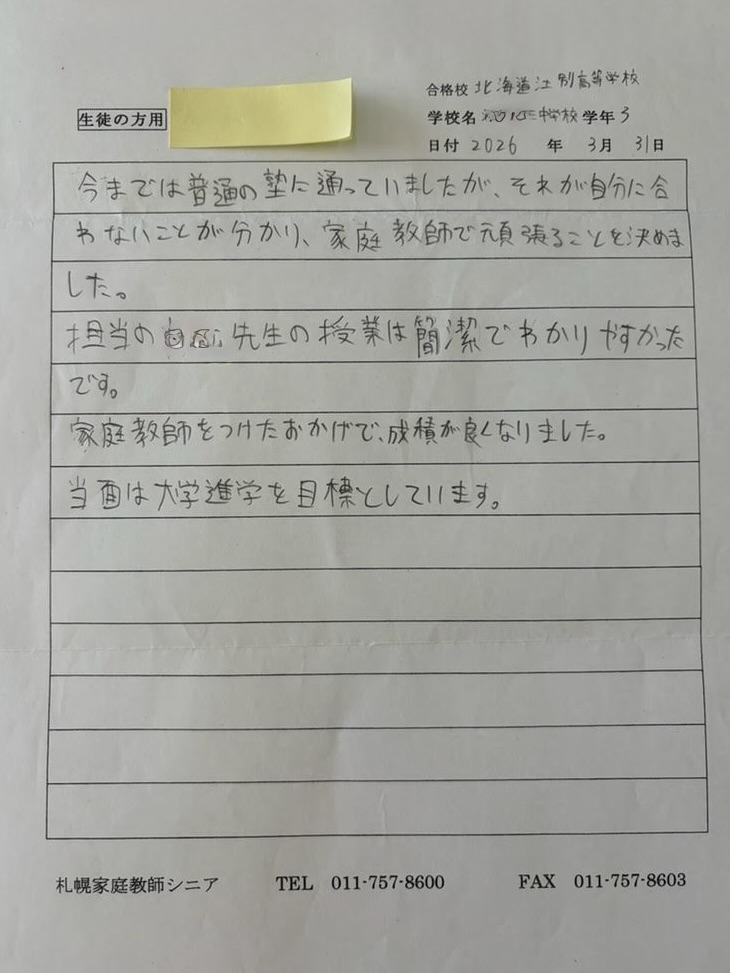 合格校 北海道江別高等学校
生徒の方用
学校名 中学校 学年 3
日付 2026 年 3月 31日
今までは普通の塾に通っていましたが、それが自分に合
わないことが分かり、家庭教師で頑張ることを決めま
した。
担当の 先生の授業は簡潔でわかりやすかった
です。
家庭教師をつけたおかげで、成積が良くなりました。
当面は大学進学を目標としています。
札幌家庭教師シニア TEL 011-757-8600 FAX 011-757-8603